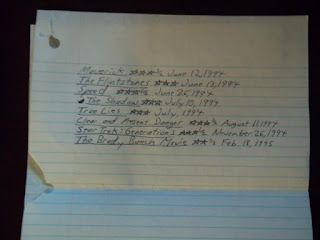 Maverick ★★★½ June 12, 1994
The Flintstones ★★★ June 12, 1994
Speed ★★★½ June 26, 1994
The Shadow ★★★ July 10, 1994
True Lies ★★★ July, 1994
Clear and Present Danger ★★★½ August 11, 1994
Star Trek: Generations ★★★½ November 26, 1994
The Brady Bunch Movie ★★½ Feb 18, 1995